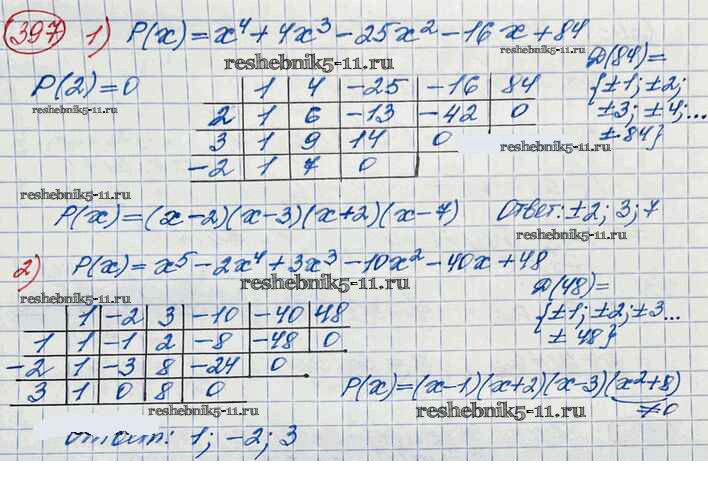 397 1) P(x)=x⁴+4x³-25x²-16x+84
reshebnik5-11.ru
P(2)=0
reshebnik5-11.ru
1 4 -25 -16 84
2 1 6 -13 -42 0
3 1 9 14 0
-2 1 7 0
D(84)=
{±1; ±2;
±3; ±4;...
± 84}
reshebnik5-11.ru
reshebnik5-11.ru
P(x)=(x-2)(x-3)(x+2)(x-7) Ответ: ±2; 3; 7
reshebnik5-11.ru
2) P(x)=x⁵-2x⁴+3x³-10x²-40x+48
reshebnik5-11.ru
1 -2 3 -10 -40 48
1 1 -1 2 -8 -48 0
-2 1 -3 8 -24 0
3 1 0 8 0
D(48)=
{±1; ±2; ±3...
± 48}
reshebnik5-11.ru
P(x)=(x-1)(x+2)(x-3)(x²+8)
≠0
reshebnik5-11.ru
reshebnik5-11.ru
ответ: 1; -2; 3